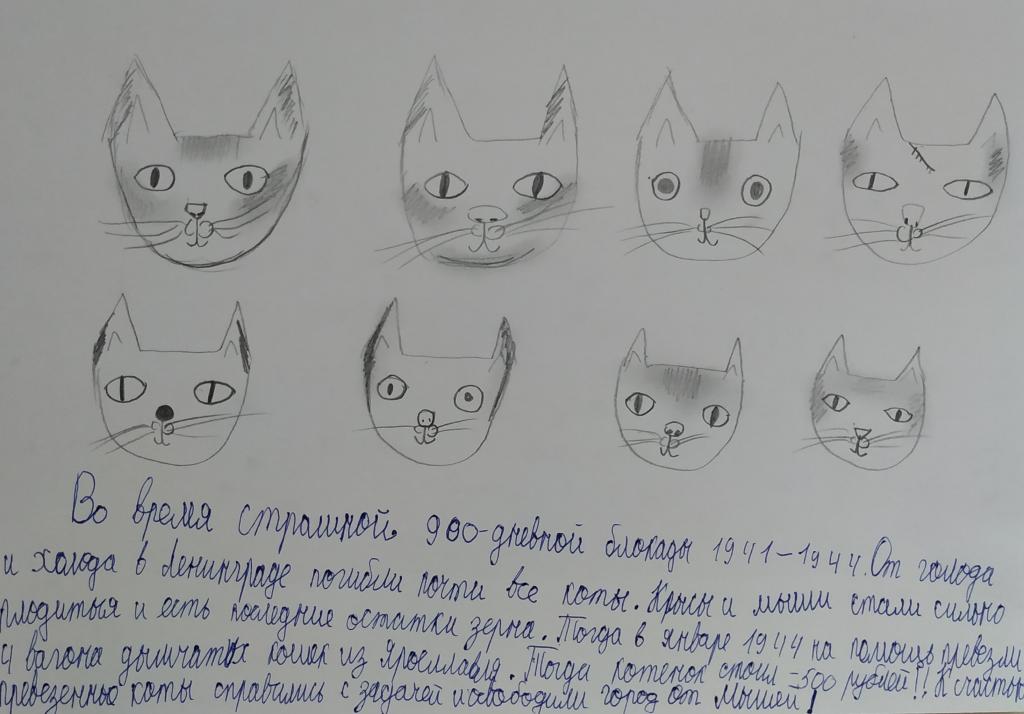 Во время страшной 900-дневной блокады 1941-1944. От голода
и холода в Ленинграде погибли почти все коты. Крысы и мыши стали сильно
плодиться и есть последние остатки зерна. Тогда в январе 1944 на помощь превезли
4 вагона дымчатых кошек из Ярославля. Тогда котенок стоил -500 рублей!! К счастью
превезенные коты справились с задачей и освободили город от мышей!